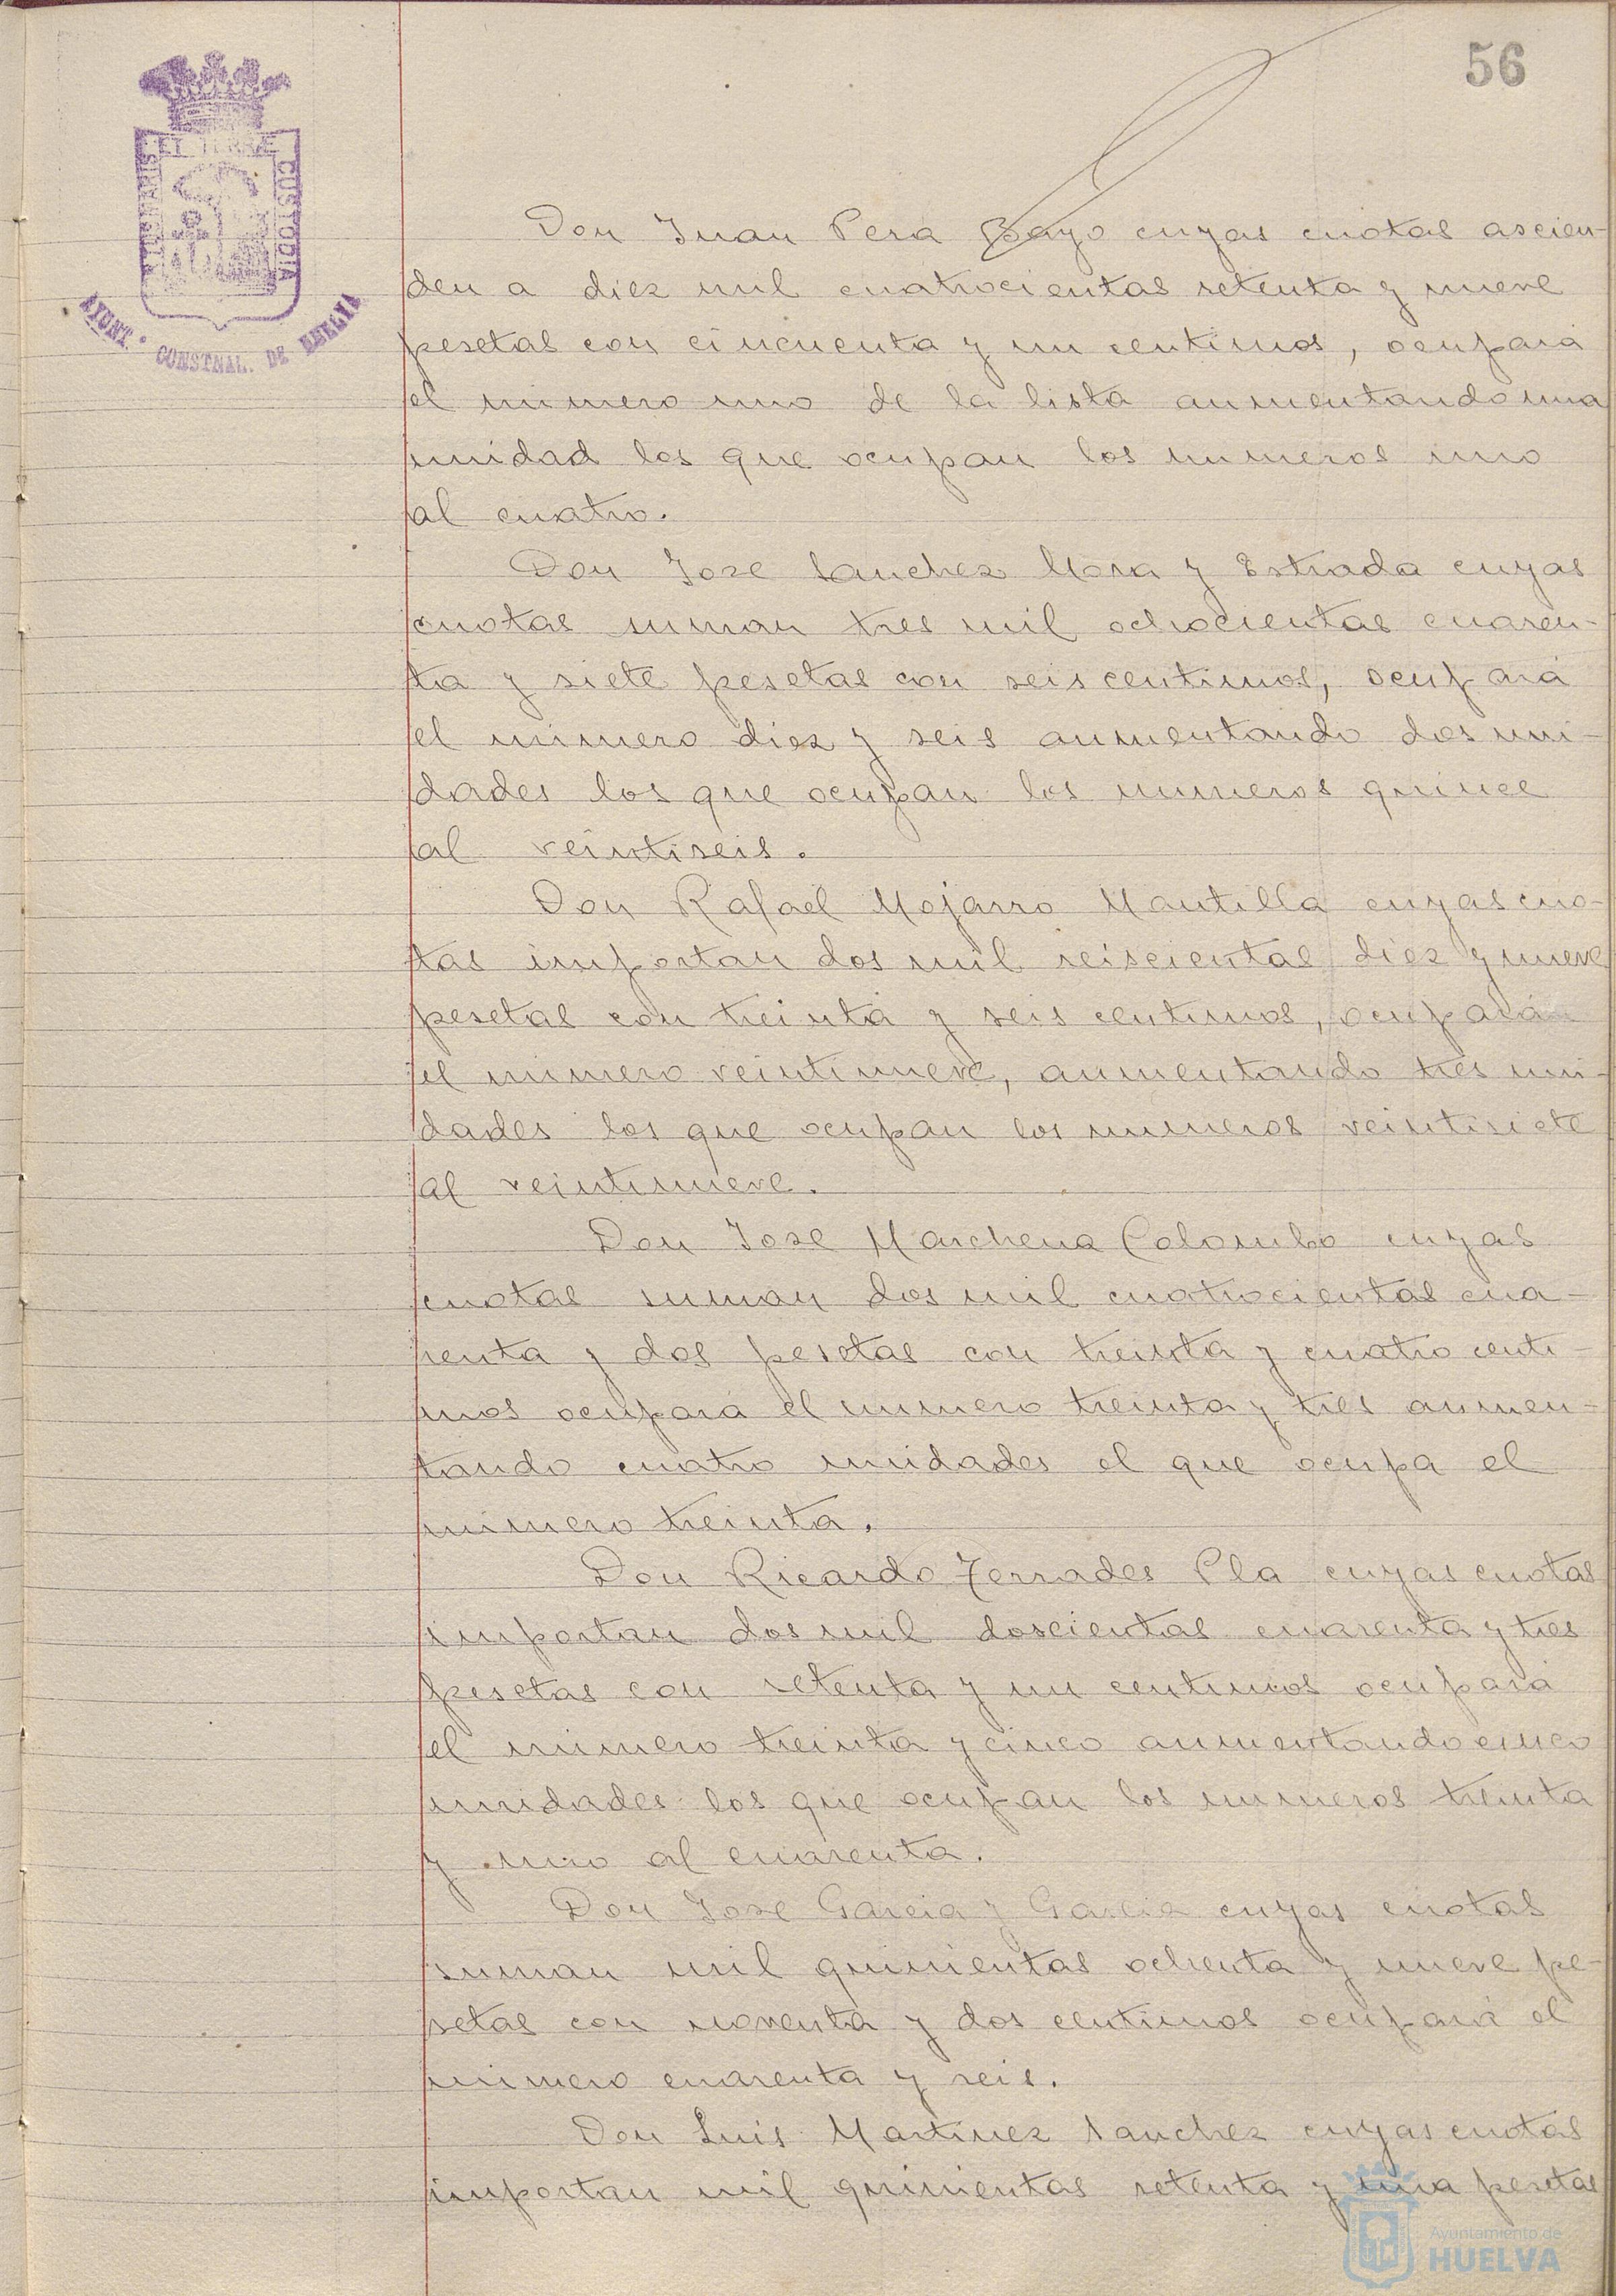 56
PORTUS MARIS
ET TERRÆ
CUSTODIA
AYUNT.º CONSTNAL. DE HUELVA
Don Juan Pera Bayo cuyas cuotas ascien-
den a diez mil cuatrocientas setenta y nueve
pesetas con cincuenta y un centimos, ocupará
el numero uno de la lista aumentando una
unidad los que ocupan los numeros uno
al cuatro.
Don Jose Sanchez Mora y Estrada cuyas
cuotas suman tres mil ochocientas cuaren-
ta y siete pesetas con seis centimos, ocupará
el numero diez y seis aumentando dos uni-
dades los que ocupan los numeros quince
al veintiseis.
Don Rafael Mojarro Mantilla cuyas cuo-
tas importan dos mil seiscientas diez y nueve
pesetas con treinta y seis centimos, ocupará
el numero veintinueve, aumentando tres uni-
dades los que ocupan los numeros veintisiete
al veintinueve.
Don Jose Marchena Colombo cuyas
cuotas suman dos mil cuatrocientas cua-
renta y dos pesetas con treinta y cuatro centi-
mos ocupará el numero treinta y tres aumen-
tando cuatro unidades el que ocupa el
numero treinta.
Don Ricardo Terrades Pla cuyas cuotas
importan dos mil doscientas cuarenta y tres
pesetas con setenta y un centimos ocupará
el numero treinta y cinco aumentando cinco
unidades los que ocupan los numeros treinta
y uno al cuarenta.
Don Jose Garcia y Garcia cuyas cuotas
suman mil quinientas ochenta y nueve pe-
setas con noventa y dos centimos ocupará el
numero cuarenta y seis.
Don Luis Martinez Sanchez cuyas cuotas
importan mil quinientas setenta y una pesetas
Ayuntamiento de
HUELVA